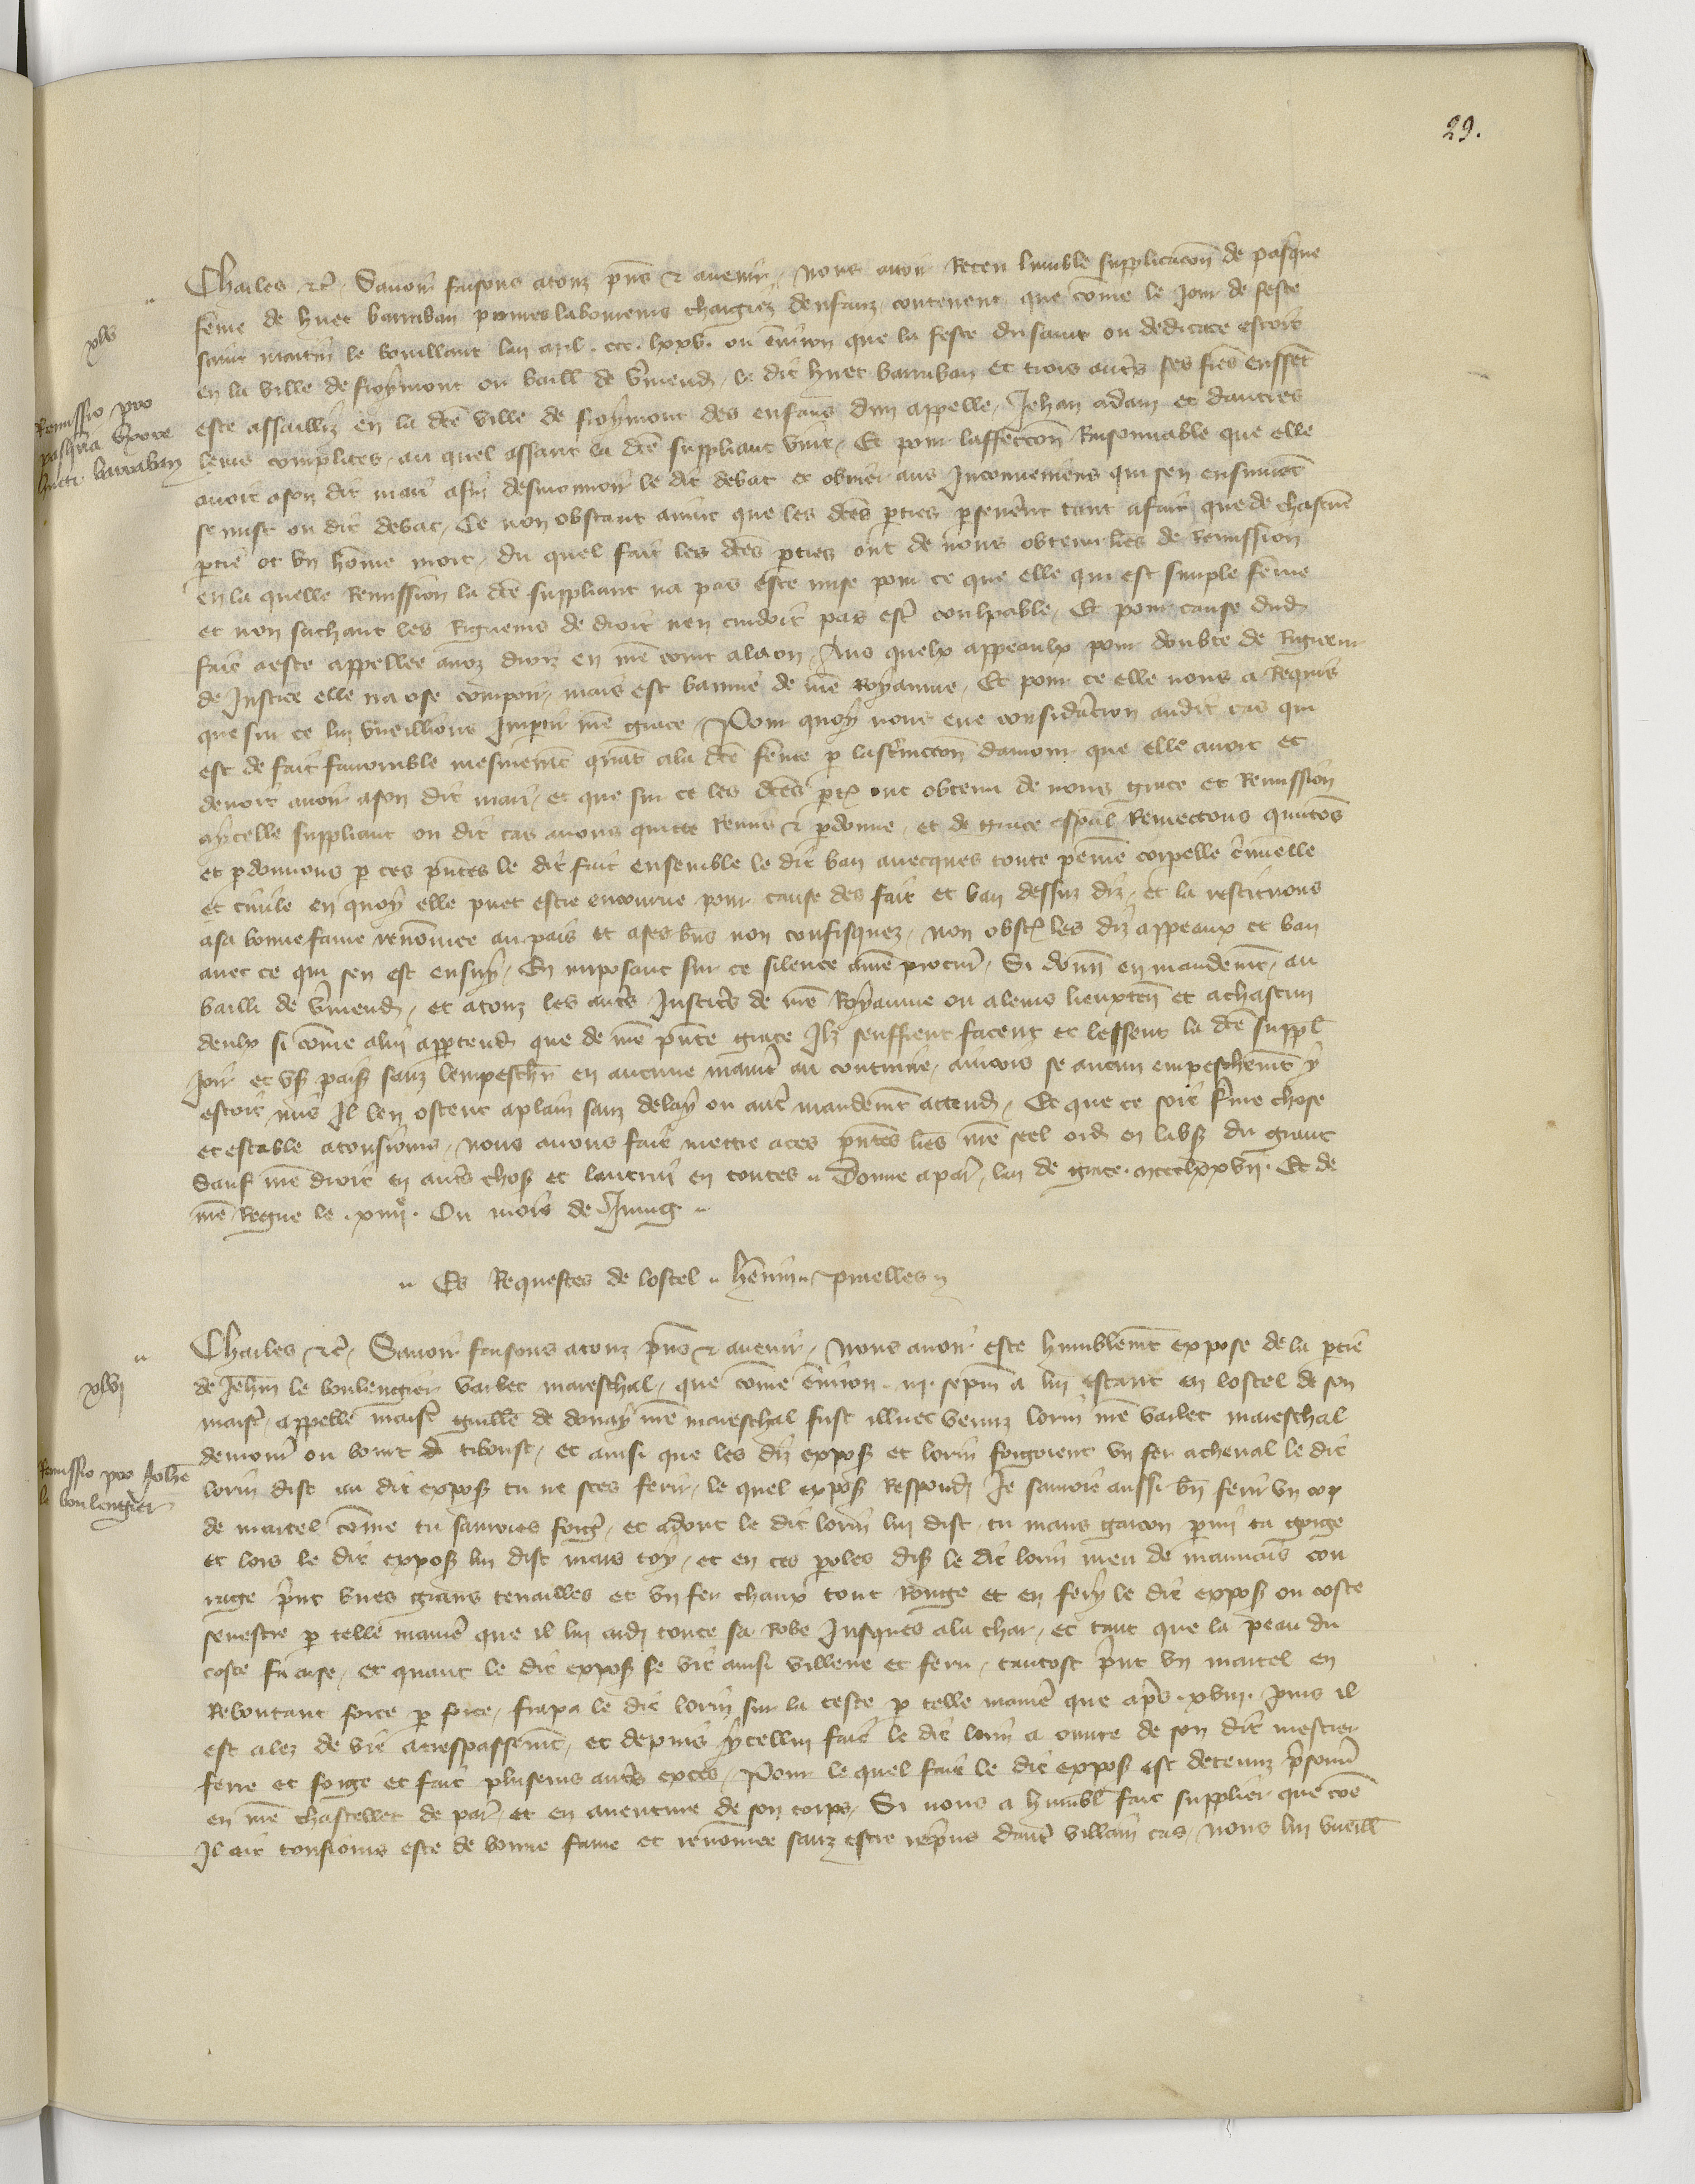 29.
Charles etc. Savoir faisons a touz pñs et avenir, nous avoir receu lumble supplicacōn de pasque
fēme de huet barraban povres laboureurs chargiez denfanz, contenent que cōme le jour de feste
saint martin le boullant lan mil. ccc. lxxv. ou environ que la feste dusaint ou dedicace estoit
en la ville de froymont ou baill de v̄mend, le dit huet barraban et trois autrs ses frēs eussēt
este assailliz en la dcē ville de froymont des enfans dun appelle, Jehan adam et dautres
leurs complices, au quel assaut la dcē suppliant vint, Et pour laffeccōn raisonnable que elle
avoit a son dit mari afin desmouvoir le dit debat et obvier aus inconveniens qui sen ensuivēt
se mist ou dit debat, Ce non obstant avint que les dcēs pties persevērent tant a fait que de chascune
ptie ot un hōme mort, du quel fait les dcēs pties ont de nous obtenu lrēs de remission
en la quelle remission la dcē suppliant na pas este mise pour ce que elle qui est simple fēme
et non sachant les rigueurs de droit nen cuidoit pas estr coulpable, Et pour cause dud
fait a este appellee a noz droiz en nrē court a laon, Aus quelx appeaulx pour doubte de rigueur
de justice elle na ose comparoir, mais est bannie de nrē royaume, Et pour ce elle nous a requis
que sur ce lui vueillions impartir nrē grace, Pour quoy nous eue consideracion audit cas qui
est de fait favorable mesmemt quāt a la dcē fēme p lastrinccōn damour que elle avoit et
devoit avoir a son dit mari, et que sur ce les dcēs pties ont obtenu de nous grace et remission
a ycelle suppliant ou dit cas avons quitte remis et pdonne, et de grace espāl remectons quictons
et pdonnons p ces pntes le dit fait ensemble le dit ban avecques toute peine corpelle criminelle
et civile en quoy elle puet estre encourue pour cause des fait et ban dessuz diz, et la restituons
a sa bonne fame renōmee au pais et a ses biēs non confisquez, non obstant les diz appeaux et ban
avec ce qui sen est ensuy, En imposant sur ce silence a nrē procur, Si donn en mandemt, au
bailli de v̄mend, et a touz les autrs justicrs de nrē Royaume ou a leurs lieuxten et a chascun
deulx si cōme a lui apptend que de nrē pnte grace ilz seuffrent facent et lessent la dcē suppl
joir et user paisiblement sanz lempeschr en aucune manir au contraire, aincois se aucun empeschemt y
estoit mis il len ostent a plain sanz delay ou autr mandemt attend, Et que ce soit ferme chose
et estable a tousjours, nous avons fait mettre a ces pntes lrēs nrē seel ord en labs du grant
Sauf nrē droit en autrs choses et lautrui en toutes. Donne a paris, lan de grace. mccclxxvii. Et de
nrē Regne le. xiiii. Ou mois de Juing.
Es Requestes de lostel. hēnin. pruelles
Charles etc, Savoir faisons a touz pñs et avenir, nous avoir este humblemt expose de la ptie
de Jehan le boulengier varlet mareschal, que cōme environ. iii. sepm a lui estant en lostel de son
maistr, appelle maistr guillē de douay nrē mareschal fust illuec venuz lorin nrē varlet mareschal
demour ou bourt de tiboust, et ainsi que les diz expos et lorin forgoient un fer a cheval le dit
lorin dist au dit expos tu ne sces ferir, le quel expos respond Je sauroie aussi bn ferir un cop
de martel cōme tu sauroies forgr, et adont le dit lorin lui dist, tu mens garcon parmi ta gorge
et lors le dit expos lui dist mais toy, et en ces paroles dis le dit lorin meu de mauvais cou
rage prit unes grans tenailles et un feu chaux tout rouge et en fery le dit expos ou coste
senestre p telle manire que il lui ardi toute sa robe jusques a la char, et tant que la peau du
coste fu arse, et quant le dit expos se vit ainsi villene et feru, tantost prit un martel en
Reboutant force p force, frapa le dit lorin sur la teste p telle manire que aprs. xviii. jours il
est alez de vie a trespassemt, et depuis ycellui fait le dit lorin a ouvre de son dit mestier
ferre et forge et fait pluseurs autrs exces, Pour le quel fait le dit expos est detenuz prisonnr
en nrē chastellet de paris, et en aventure de son corps, Si nous a humbl fait supplier que cōe
Il ait tousjours este de bonne fame et renōmee sanz estre repris dautr villain cas, nous lui vueill
xlv
Remissio pro
pasqua uxore
hueti barraban
xlvi
Remissio pro Johē
le boulengier